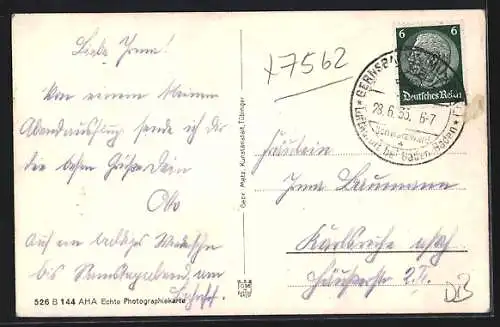 Liebe Irma!
Von einem kleinen
Abendausflug sende ich dir
die besten Grüße dein
Otto
Auf ein baldiges Wiedersehn
bis Samstagabend am
526 B 144 AHA Echte Photographiekarte
Gebr. Metz, Kunstanstalt, Tübingen
x7562
6 6
Deutsches Reich
GERNSBA
28.6.35. 6-7
Schwarzwald
Luftkurort bei Baden-Baden
Fräulein
Irma Baumann
Karlsruhe
DB